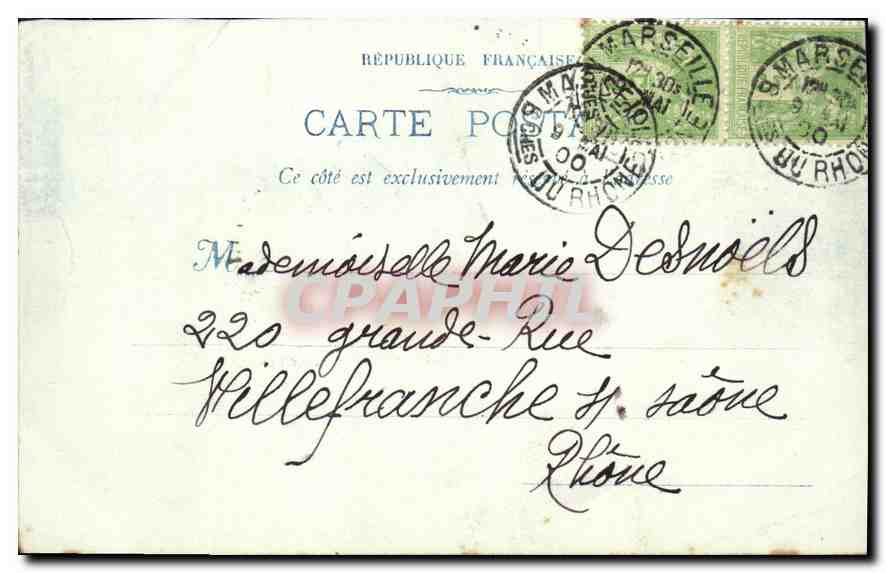 RÉPUBLIQUE FRANÇAISE
CARTE POSTA
Ce côté est exclusivement réservé à l'adresse
MARSEILLE
12H30
MAI
MARSEILLE
9 MAI
00
BCHES DU RHONE
MARSEI
9
00
DU RHONE
Mademoiselle Marie Desnoëls
CPAPHIL
220 grande-Rue
Villefranche s/ saône
Rhône